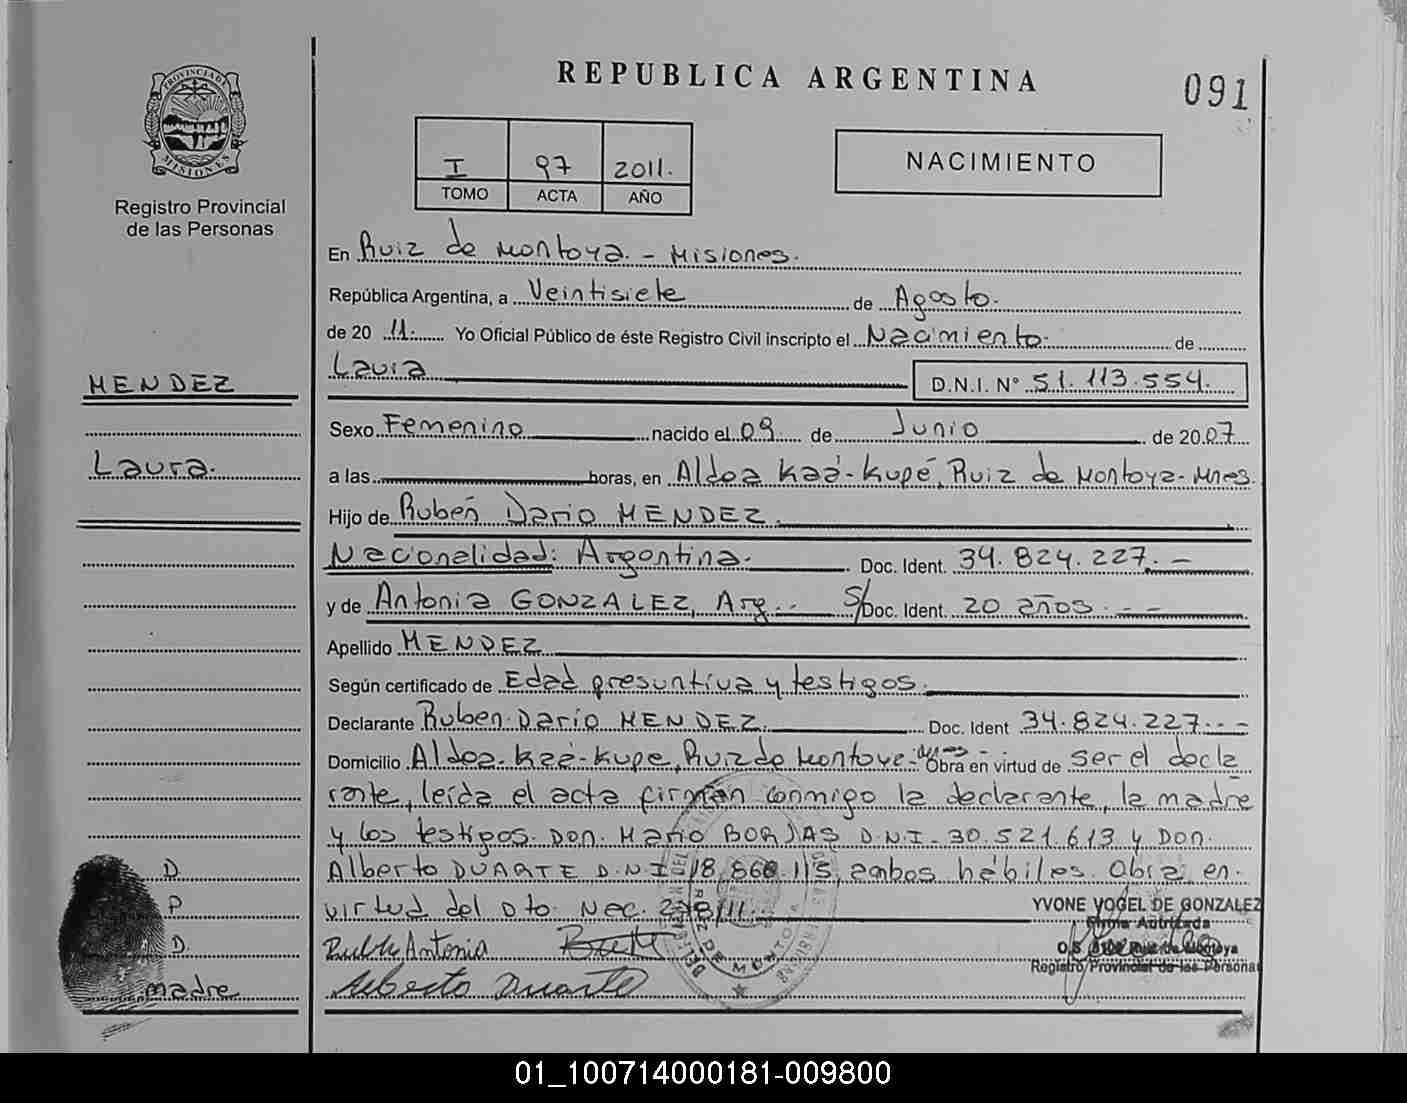 REPUBLICA ARGENTINA
091
PROVINCIA DE MISIONES
Registro Provincial
de las Personas
I 97 2011.
TOMO ACTA AÑO
NACIMIENTO
En Ruiz de Montoya. - Misiones.
República Argentina, a Veintisiete de Agosto.
de 20 11. Yo Oficial Público de éste Registro Civil inscripto el Nacimiento. de
Laura D.N.I. N° 51.113.554.
MENDEZ
Laura.
Sexo Femenino nacido el 09 de Junio de 2007
a las horas, en Aldea Kaá-Kupé, Ruiz de Montoya-Mnes.
Hijo de Rubén Dario MENDEZ.
Nacionalidad: Argentina. Doc. Ident. 34.824.227.-
y de Antonia GONZALEZ, Arg.. S/Doc. Ident. 20 años.--
Apellido MENDEZ
Según certificado de Edad presuntiva y testigos.
Declarante Ruben Darío MENDEZ. Doc. Ident 34.824.227.--
Domicilio Aldea-Kaá-Kupe, Ruiz de Montoya- Obra en virtud de ser el decla
rante, leída el acta firman conmigo la declarante, la madre
y los testigos. Don. Mario BORJAS D.N.I. 30.521.613 y Don.
Alberto DUARTE D.N.I. 18.860.115, ambos hábiles. Obra en
virtud del Dto. Nac. 278/11.
D.
P
D.
madre
Antonia
Alberto Duarte
YVONE VOGEL DE GONZALEZ
Firma Autorizada
O.S. Ruiz de Montoya
Registro Provincial de las Personas
RUIZ DE MONTOYA
01_100714000181-009800